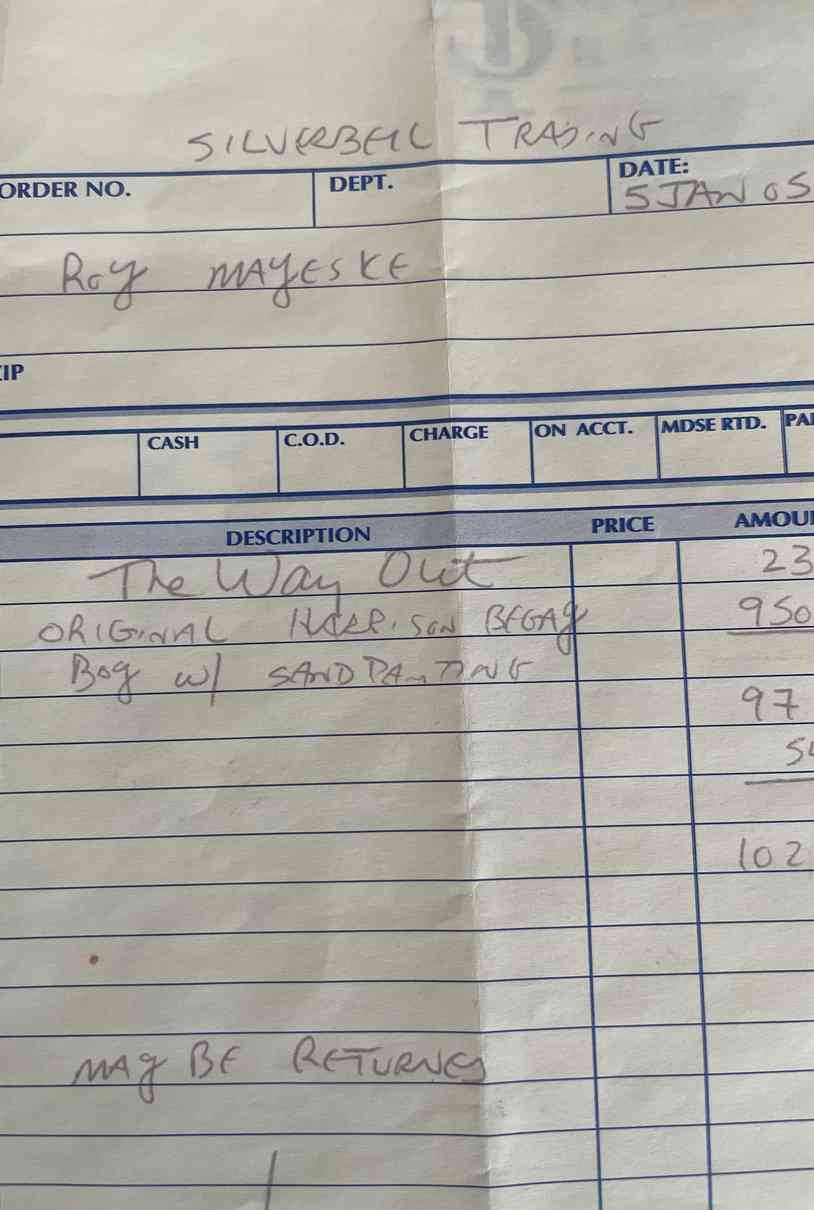 SILVERBELL TRADING
ORDER NO. DEPT. DATE:
5 JAN 05
Roy MAYESKE
IP
CASH C.O.D. CHARGE ON ACCT. MDSE RTD. PAI
DESCRIPTION PRICE AMOU
The Way Out 23
ORIGINAL HARRISON BEGAY 950
Boy w/ SANDPAINTING
97
54
102
MAY BE RETURNED